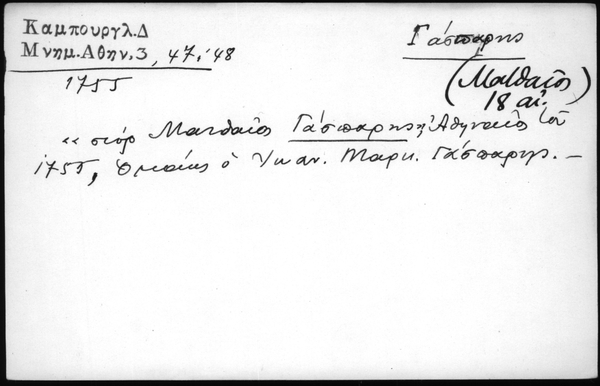 Καμπουργλ.Δ
Μνημ.Αθην.3, 47, 48
1755
Γάσπαρης
(Ματθαῖος)
18 αἰ.
«σιὸρ Ματθαῖος Γάσπαρης, Ἀθηναῖος τοῦ
1755, ὁ Μαρκ. Γάσπαρης. —